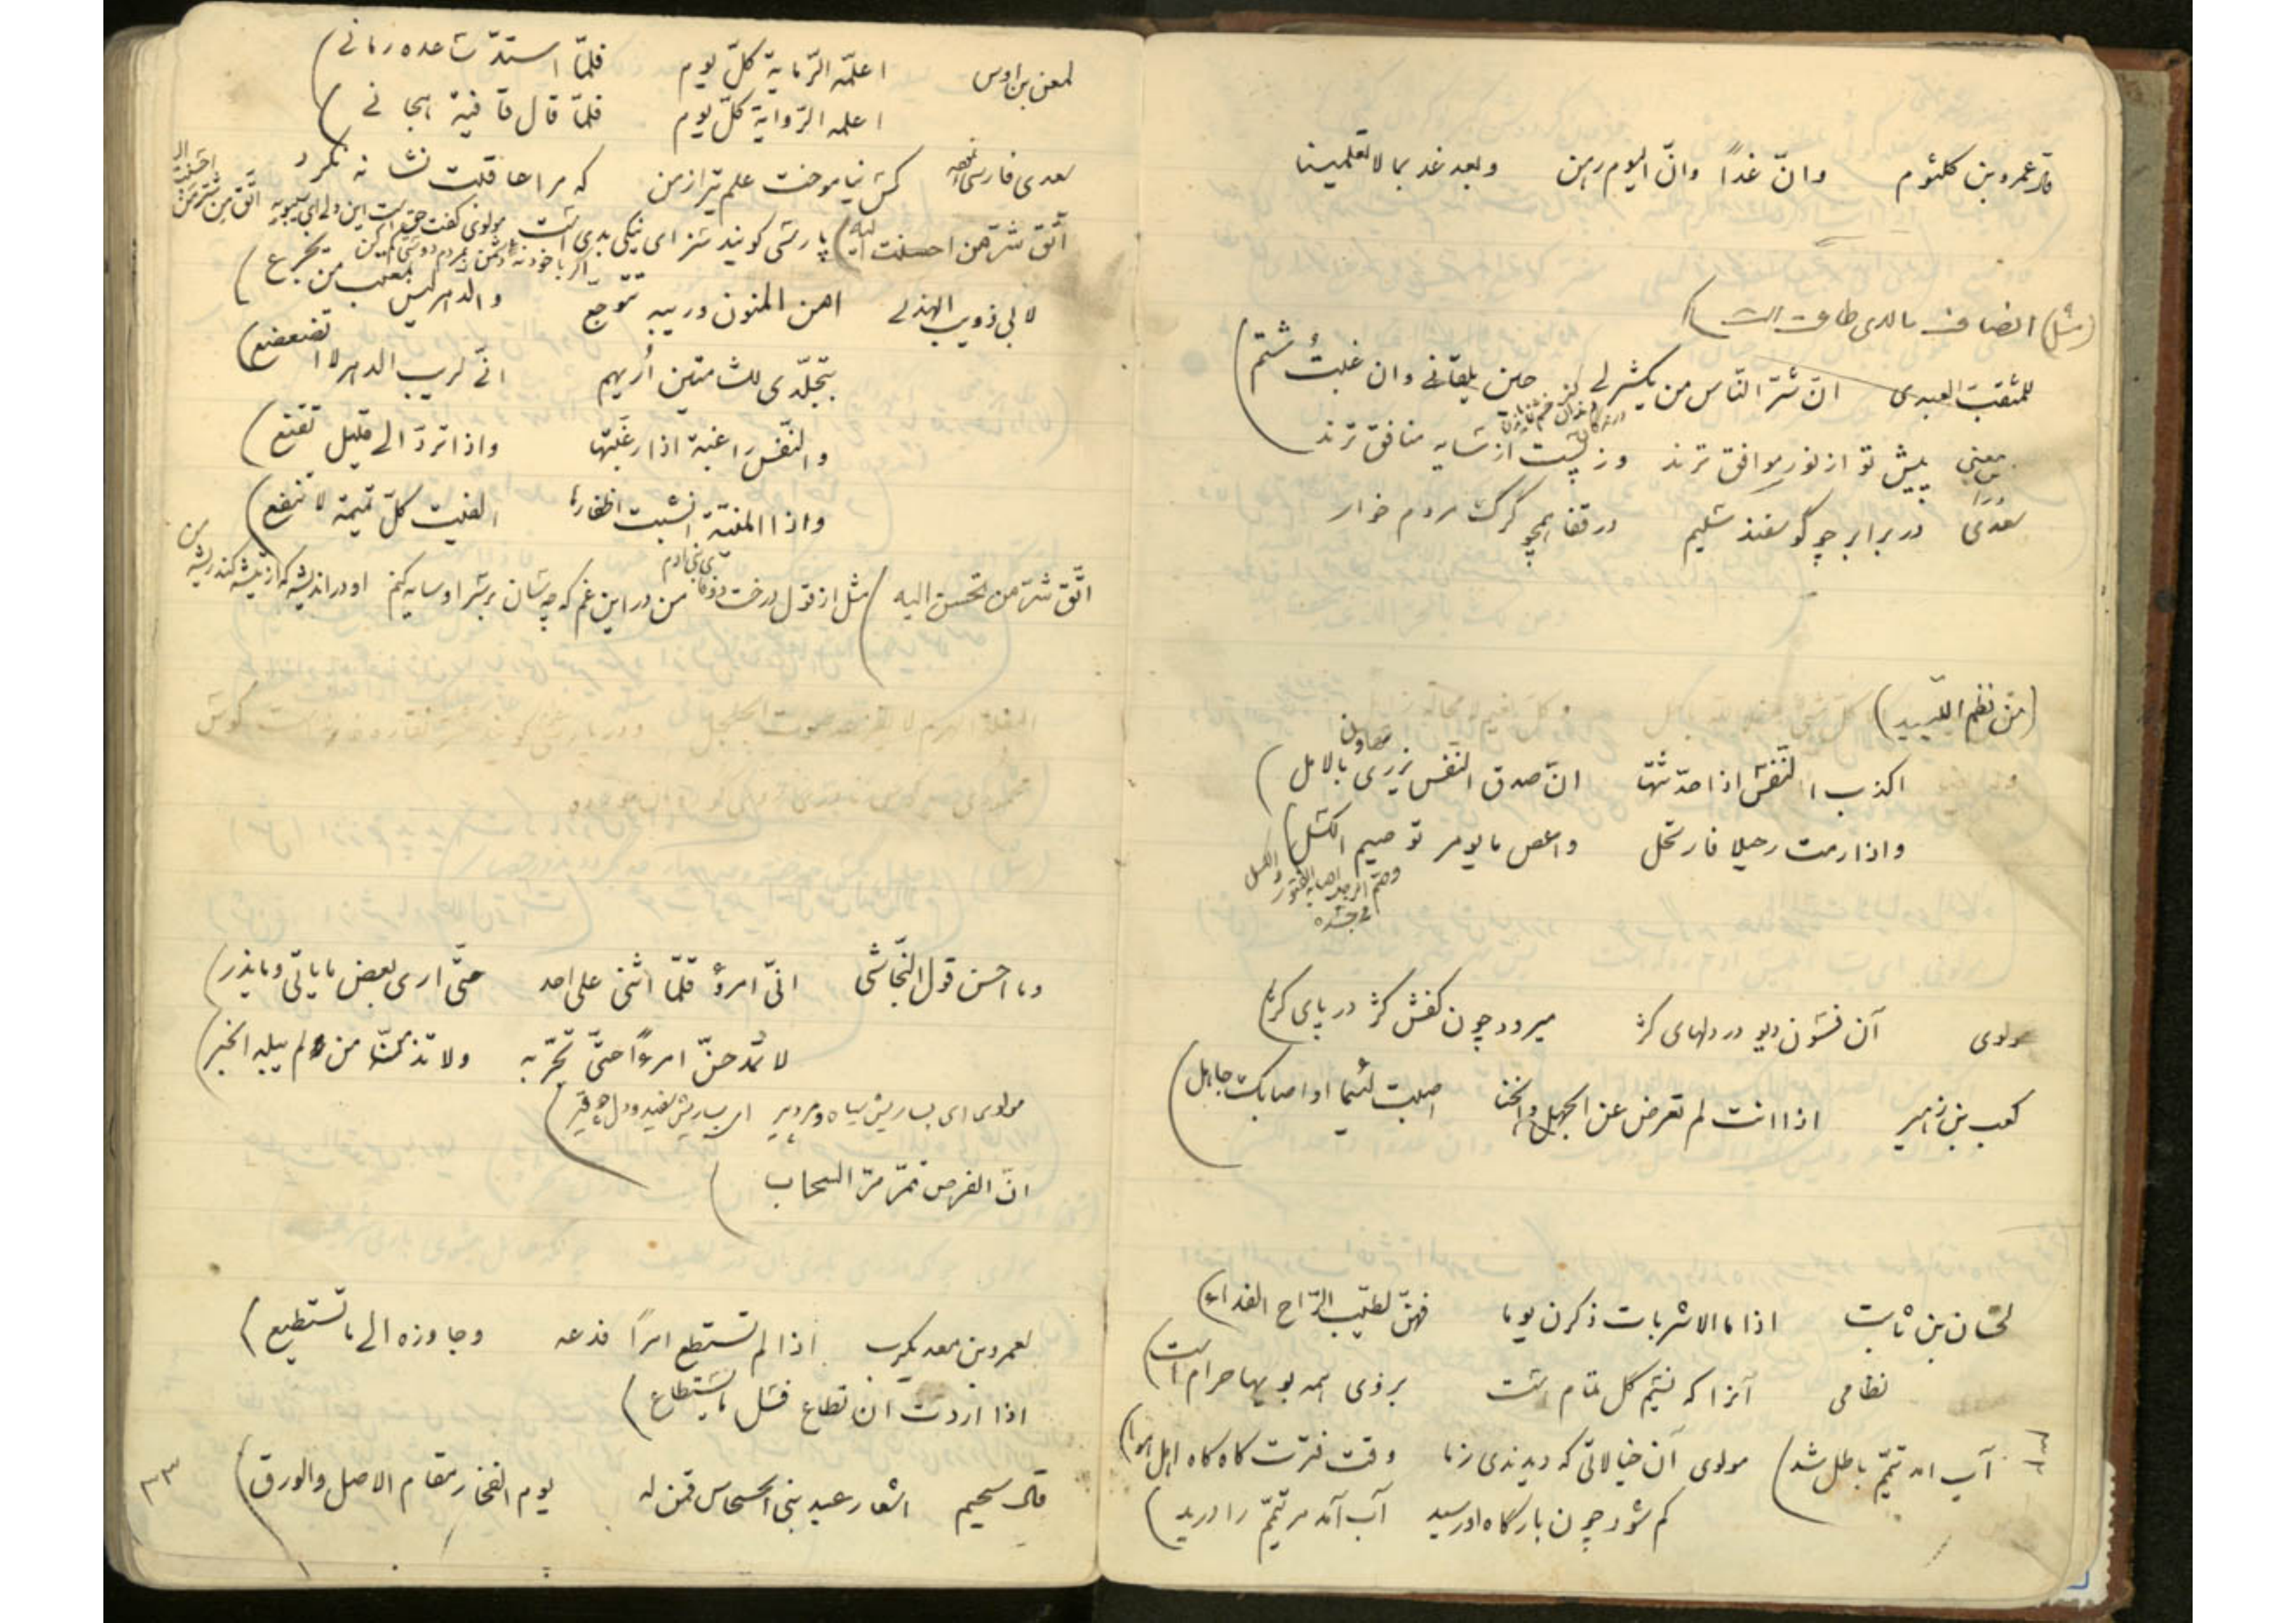 قال عمرو بن كلثوم وانّ غداً وانّ اليوم رهن وبعد غد بما لا تعلمينا
(مثل)
للمثقب العبدی انّ شرّ النّاس من يكشر لی حين يلقانی وان غبتُ شتم)
معنی پیش تو از نور موافق ترند وز پست از سایه منافق ترند
سعدی در برابر چو گوسفند سلیم در قفا همچو گرگ مردم خوار
(من نظم اللّبيد)
اكذب النّفس اذا حدّثتها انّ صدق النّفس يزری بالامل)
واذا رمت رحيلا فارتحل واعص ما يومر توصيم الكسل)
مولوی آن فسون دیو در دلهای کژ میرود چون کفش کژ در پای کژ)
كعب بن زهير اذا انت لم تعرض عن الجهل والخنا اصبت لئيما او اصابك جاهل)
لحسّان بن ثابت اذا ما الاشربات ذكرن يوما فهنّ لطيّب الرّاح الفداء)
نظامی آنرا که نسیم گل تمام است بروی همه بویها حرام است)
آب آمد تیمّم باطل شد) مولوی آن خیالاتی که دیدندی زما وقت فترت گاه گاه اهل هوا)
کم شود چون بارگاه او رسید آب آمد مر تیمّم را درید)
لمعن بن اوس اعلّمه الرّماية كلّ يوم فلمّا استدّ ساعده رمانی)
اعلمه الرّواية كلّ يوم فلمّا قال قافية هجانی)
سعدی فارسی کس نیاموخت علم تیر از من که مرا عاقبت نشانه نکرد
اتّق شرّ من احسنت اليه) پارسی گویند سزای نیکی بدی است مولوی گفت حق است این ولی ای سیبویه اتّق من شرّ من احسنت اليه
لابی ذويب الهذلی امن المنون وريبه تتوجّع والدهر ليس بمعتب من يجزع)
بتجلّدی للشامتين اُريهم انّی لريب الدهر لا اتضعضع)
والنّفس راغبة اذا رغّبتها واذا تردّ الی قليل تقنع)
واذا المنيّة انشبت اظفارها الفيت كلّ تميمة لا تنفع)
اتّق شرّ من تحسن اليه) مثل از قول درخت من در این غم که چه سان بر سر او سایه کنم او در اندیشه که از تیشه کند ریشه من
وما احسن قول النّجاشی انّی امرؤ قلّما اثنی علی احد حتّی اری بعض ما ياتی وما يذر)
لا تمدحنّ امرءًا حتّی تجرّبه ولا تذمّنّ من لم يبله الخبر)
مولوی ای بسا ریش سیاه و مرد پیر ای بسا ریش سفید و دل چو قیر)
انّ الفرص تمرّ مرّ السحاب)
لعمرو بن معديكرب اذا لم تستطع امراً فدعه وجاوزه الی ما تستطيع)
اذا اردت ان تطاع فسل ما يستطاع)
قال سحيم اشعار عبد بنی الحسحاس قمن له يوم الفخار مقام الاصل والورق)
٣٣